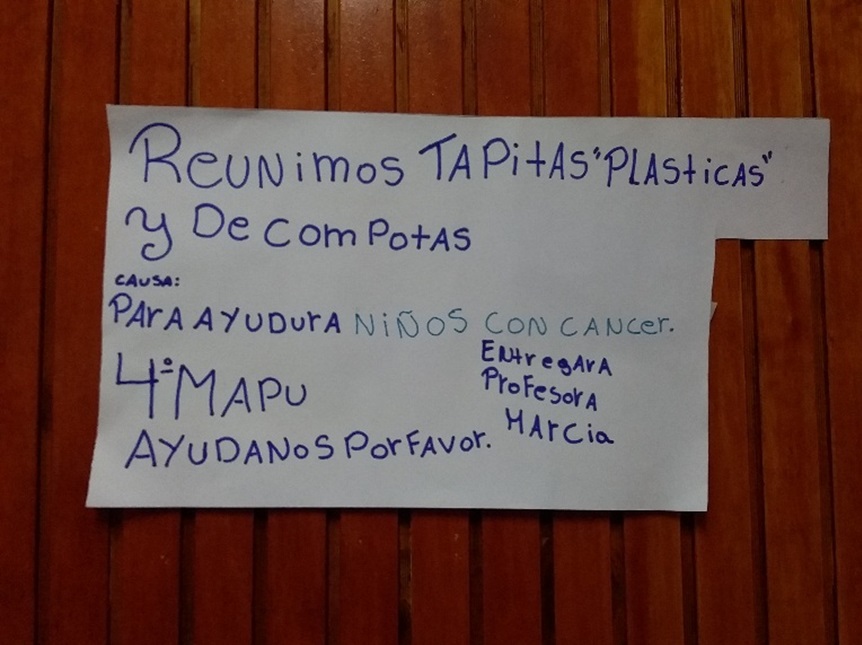 Reunimos TAPitAS "PLAStiCAS"
y De ComPotAS
CAUSA:
PArA AYUDUrA NiÑOS CON CANCer.
4° MAPU
EntregArA
ProFesorA
MArCia
AYUDANOS Por FAVor.